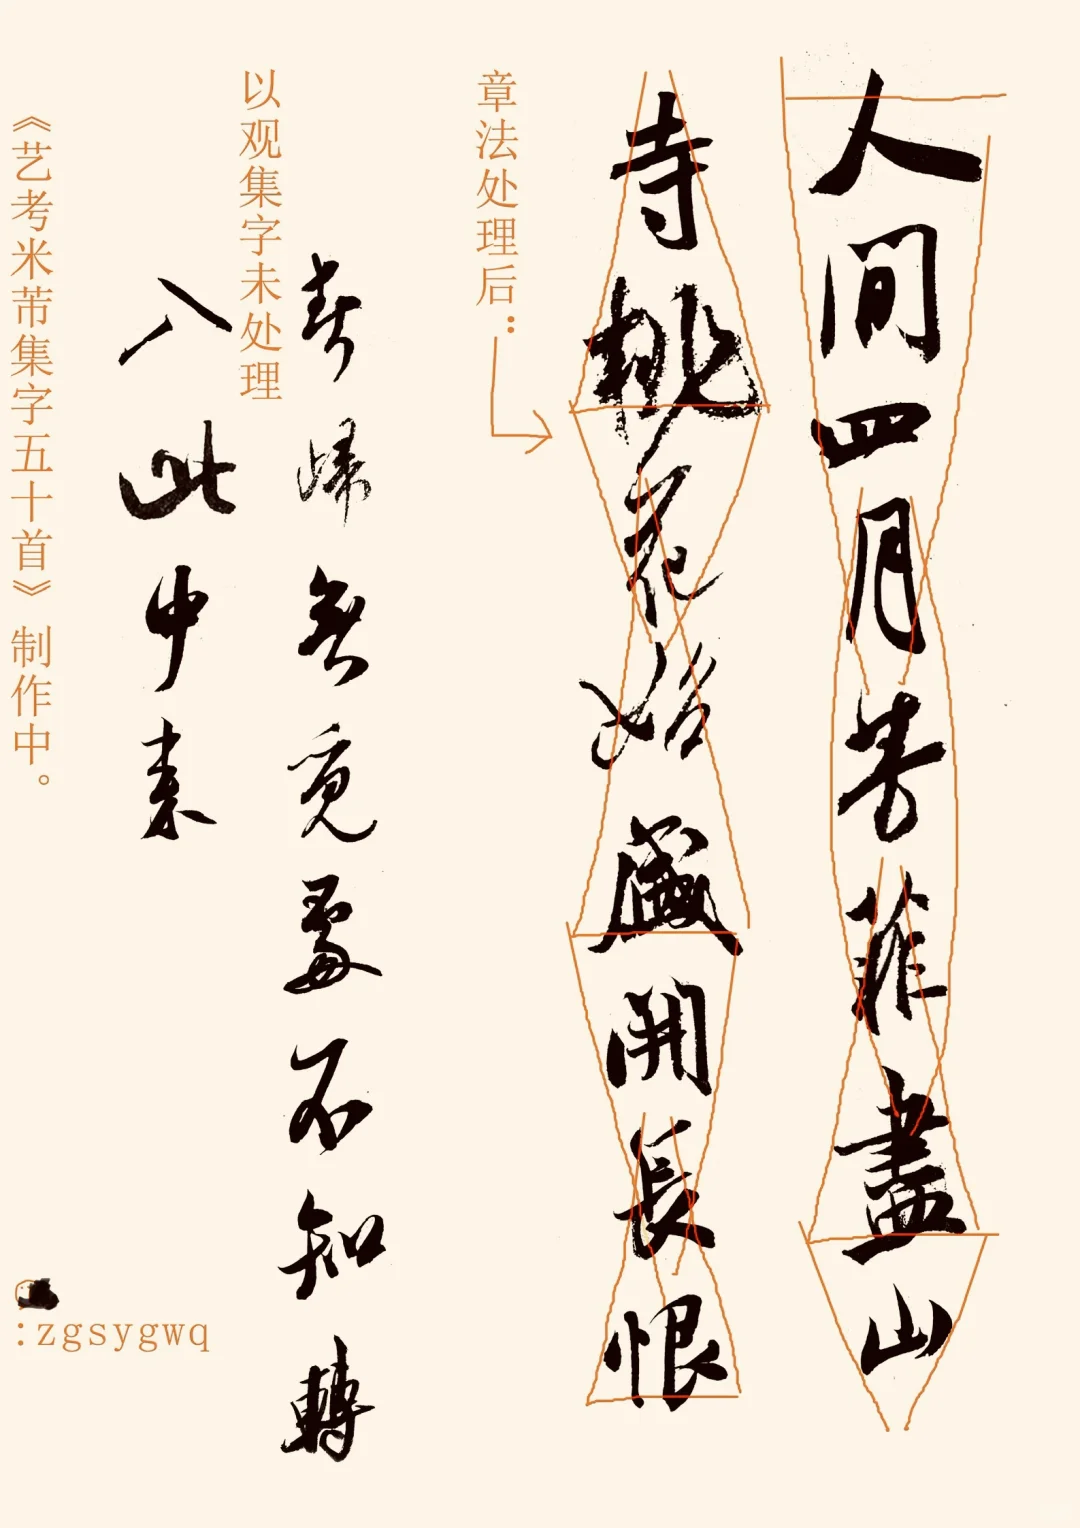 人間四月芳菲盡山
寺桃花始盛開長恨
章法处理后：
春歸無覓處不知轉
以观集字未处理
入此中来
《艺考米芾集字五十首》制作中。
:zgsygwq